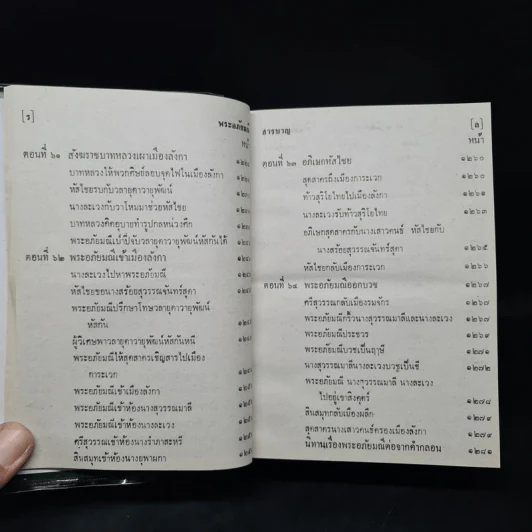 [ร]
พระอภัยมณี
หน้า
ตอนที่ ๖๑ สังฆราชบาทหลวงเผาเมืองลังกา
บาทหลวงให้พวกศิษย์ลอบจุดไฟในเมืองลังกา
หัสไชยรบกับวลายุดาวายุพัฒน์
นางละเวงกับวาโหมมาช่วยหัสไชย
บาทหลวงคิดอุบายทำรูปกลหน่วงศึก
พระอภัยมณีเป่าปี่จับวลายุดาวายุพัฒน์หัสกันได้
ตอนที่ ๖๒ พระอภัยมณีเข้าเมืองลังกา
นางละเวงไปหาพระอภัยมณี
หัสไชยขอนางสร้อยสุวรรณจันทร์สุดา
พระอภัยมณีปรึกษาโทษวลายุดาวายุพัฒน์
หัสกัน
ผู้วิเศษพาวลายุดาวายุพัฒน์หัสกันหนี
พระอภัยมณีให้สุดสาครเชิญสารไปเมือง
การะเวก
พระอภัยมณีเข้าเมืองลังกา
พระอภัยมณีเข้าห้องนางสุวรรณมาลี
พระอภัยมณีเข้าห้องนางละเวง
ศรีสุวรรณเข้าห้องนางรำภาสะหรี
สินสมุทเข้าห้องนางยุพาผกา
สารบาญ
[ล]
หน้า
ตอนที่ ๖๓ อภิเษกหัสไชย ๑๒๖๐
สุดสาครถึงเมืองการะเวก ๑๒๖๐
ท้าวสุริโยไทยไปเมืองลังกา ๑๒๖๑
นางละเวงรับท้าวสุริโยไทย ๑๒๖๓
อภิเษกสุดสาครกับนางเสาวคนธ์ หัสไชยกับ
นางสร้อยสุวรรณจันทร์สุดา ๑๒๖๕
หัสไชยกลับเมืองการะเวก ๑๒๖๖
ตอนที่ ๖๔ พระอภัยมณีออกบวช ๑๒๖๗
ศรีสุวรรณกลับเมืองรมจักร ๑๒๖๗
พระอภัยมณีรั้วนางสุวรรณมาลีและนางละเวง ๑๒๖๙
พระอภัยมณีประชวร
พระอภัยมณีบวชเป็นฤๅษี ๑๒๗๑
นางสุวรรณมาลีนางละเวงบวชเป็นชี ๑๒๗๒
พระอภัยมณี นางสุวรรณมาลี นางละเวง
ไปอยู่เขาสิงคุตร์ ๑๒๗๔
สินสมุทกลับเมืองผลึก
สุดสาครนางเสาวคนธ์ครองเมืองลังกา ๑๒๗๙
นิทานเรื่องพระอภัยมณีต่อจากคำกลอน ๑๒๘๑